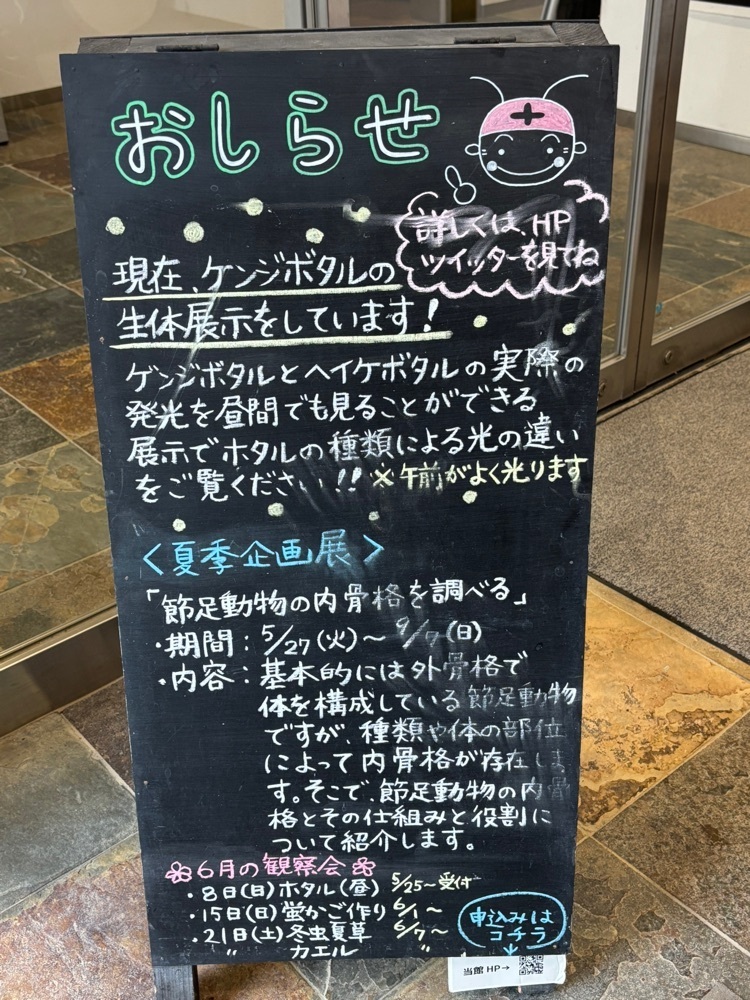 おしらせ
詳しくは、HP
ツイッターを見てね
現在、ゲンジボタルの
生体展示をしています!
ゲンジボタルとヘイケボタルの実際の
発光を昼間でも見ることができる
展示でホタルの種類による光の違い
をご覧ください!! ※午前がよく光ります
<夏季企画展>
「節足動物の内骨格を調べる」
・期間:5/27(火)~9/7(日)
・内容:基本的には外骨格で
体を構成している節足動物
ですが、種類や体の部位
によって内骨格が存在しま
す。そこで、節足動物の内骨
格とその仕組みと役割に
ついて紹介します。
6月の観察会
・8日(日)ホタル(昼) 5/25~受付
・15日(日)蛍かご作り 6/1~
・21日(土)冬虫夏草 6/7~
〃 カエル 〃
申込みは
コチラ
当館HP→